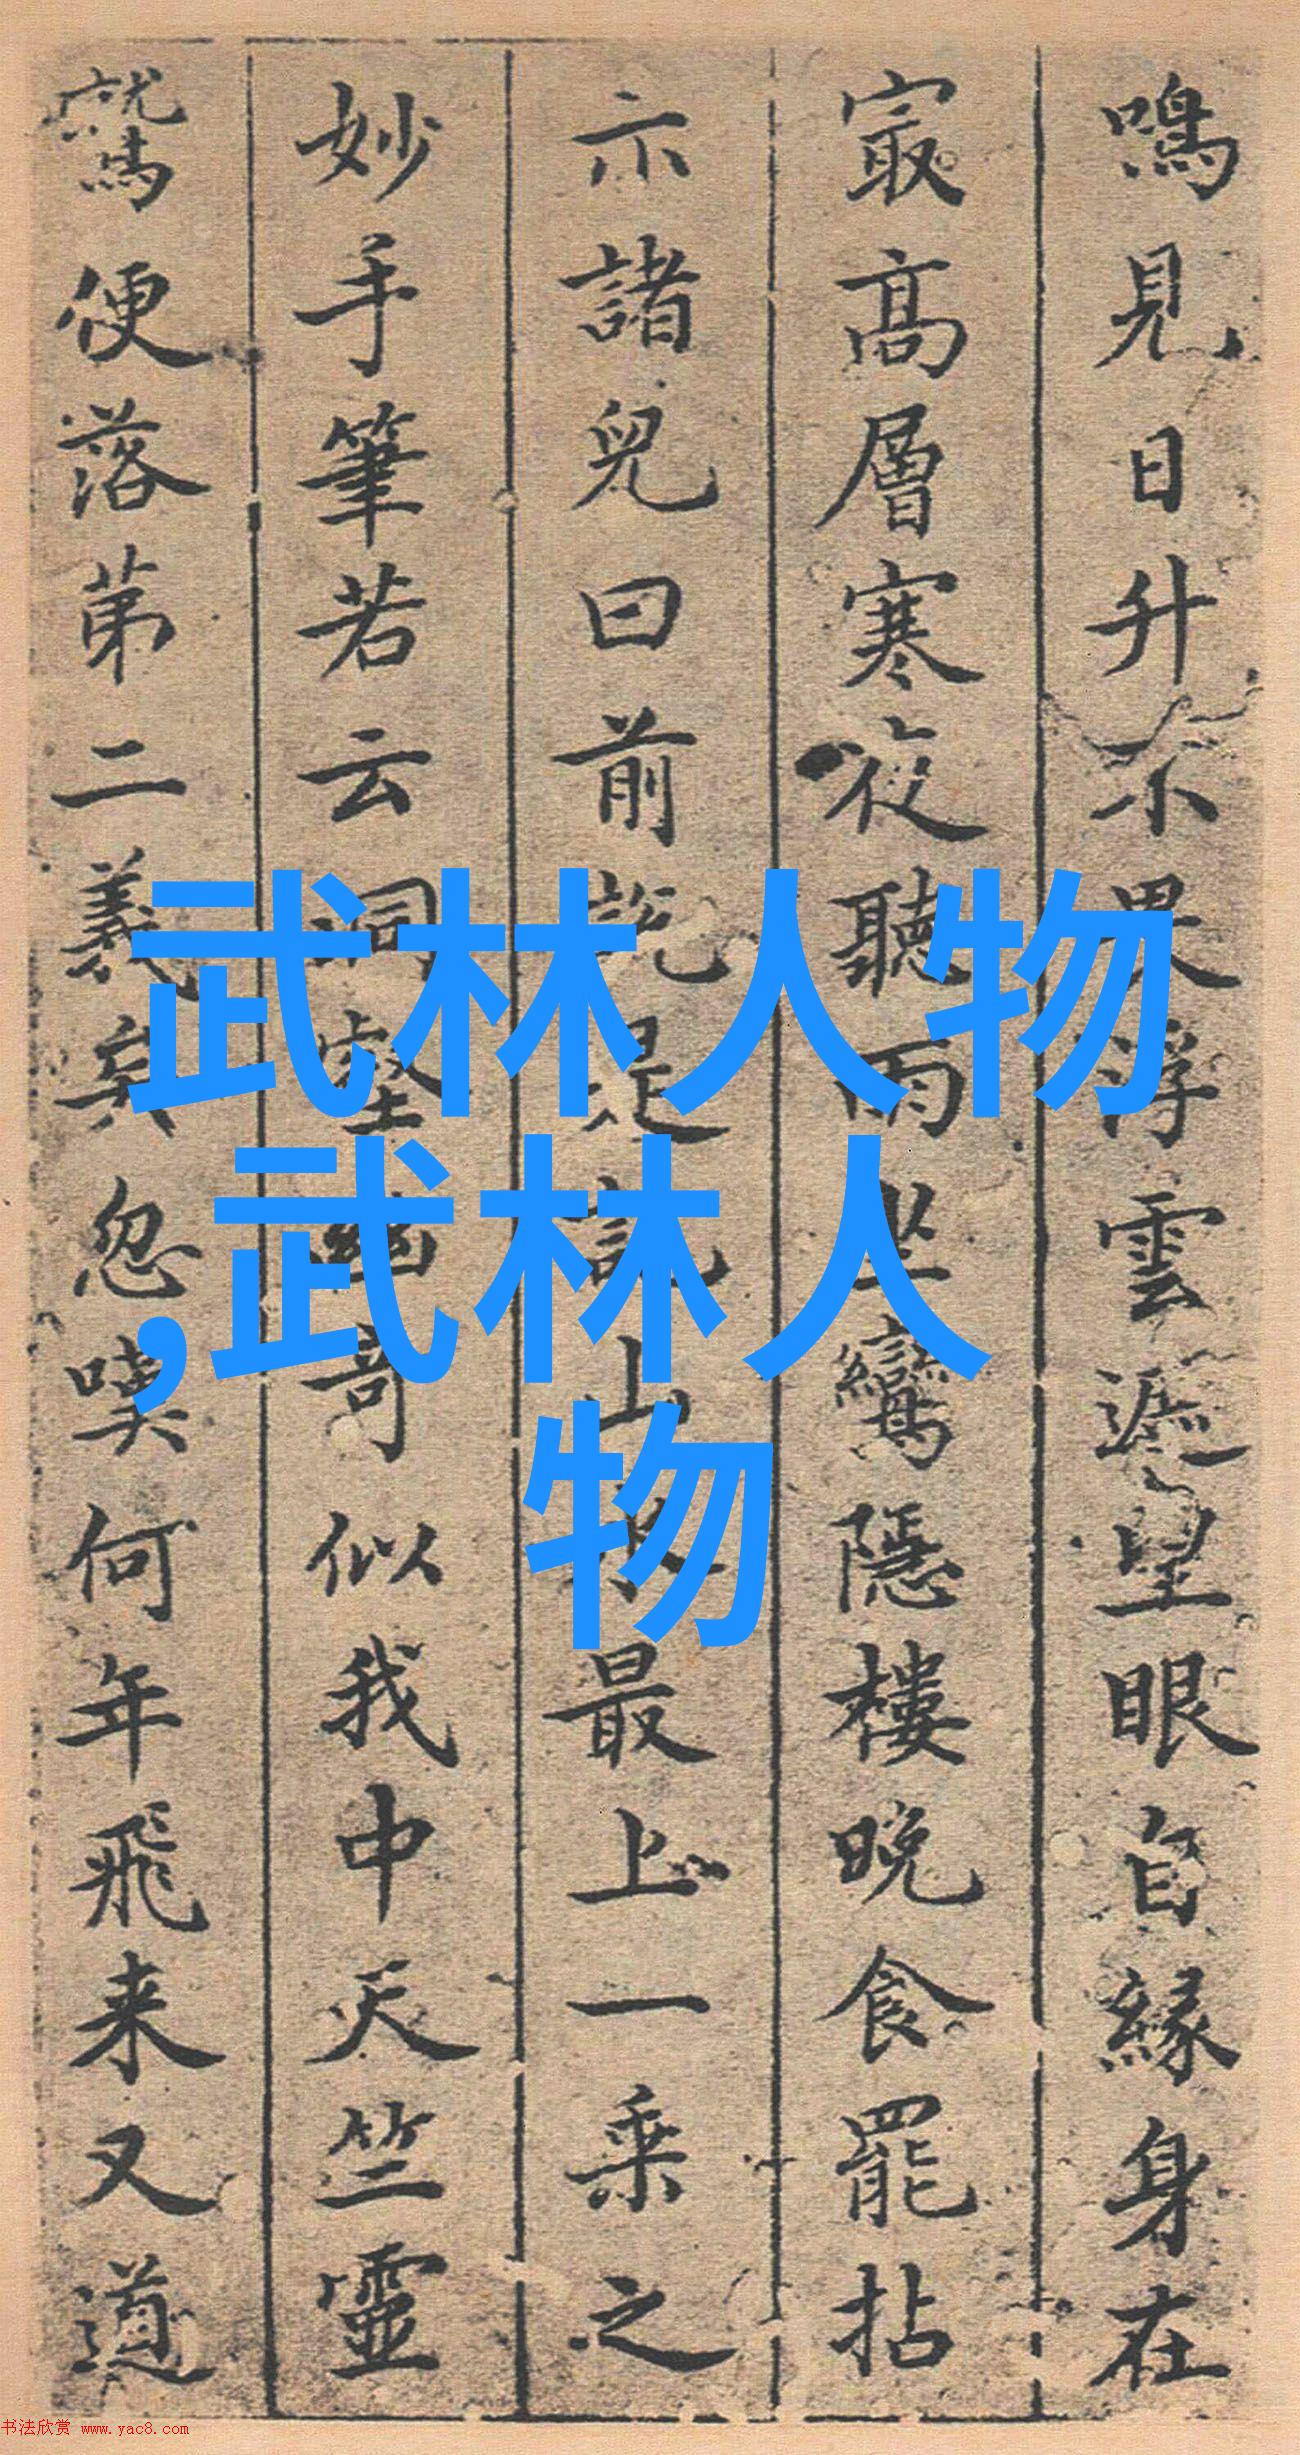 鳴見日升不畏浮雲遮望眼自緣身在
寂高層寒夜聽雨坐鸞隱樓晚食罷拈
示諸兒曰前說是記山水最上一乘之
妙手筆若云洞壑幽奇似我中天竺靈
鷲便落苐二義矣忽嘆何年飛来又道
武林人物
,武林人
物
书法欣赏 www.yac8.com